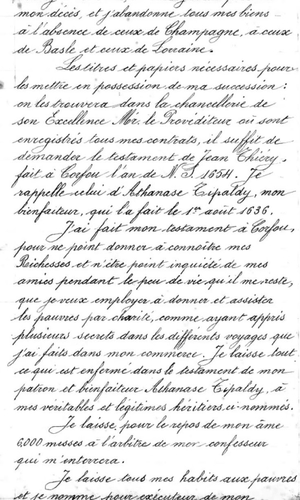 mon décès, et j'abandonne tous mes biens
à l'absence de ceux de Champagne, à ceux
de Basle et ceux de Lorraine.
Les titres et papiers nécessaires pour
les mettre en possession de ma succession :
on les trouvera dans la chancellerie de
son Excellence Mgr. le Providiteur où sont
enregistrés tous mes contrats, il suffit de
demander le testament de Jean Thiery,
fait à Corfou l'an de N. S. 1654. Je
rappelle celui d'Athanase Tipaldy, mon
bienfaiteur, qui l'a fait le 1er août 1636.
J'ai fait mon testament à Corfou,
pour ne point donner à connoître mes
Richesses et n'être point inquiété de mes
amies pendant le peu de vie qu'il me reste,
que je veux employer à donner et assister
les pauvres par charité, comme ayant appris
plusieurs secrets dans les différents voyages que
j'ai faits dans mon commerce. Je laisse tout
ce qui est enfermé dans le testament de mon
patron et bienfaiteur Athanase Tipaldy, à
mes véritables et légitimes héritiers ci-nommés.
Je laisse, pour le repos de mon âme
6,000 messes à l'arbitre de mon confesseur
qui m'enterrera.
Je laisse tous mes habits aux pauvres
et je nomme pour exécuteur de mon